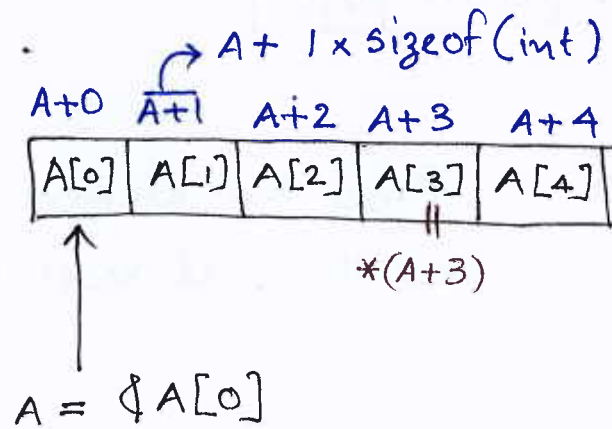 A + 1 × sizeof(int)
A+0 A+1 A+2 A+3 A+4
A[0] A[1] A[2] A[3] A[4]
*(A+3)
A = &A[0]